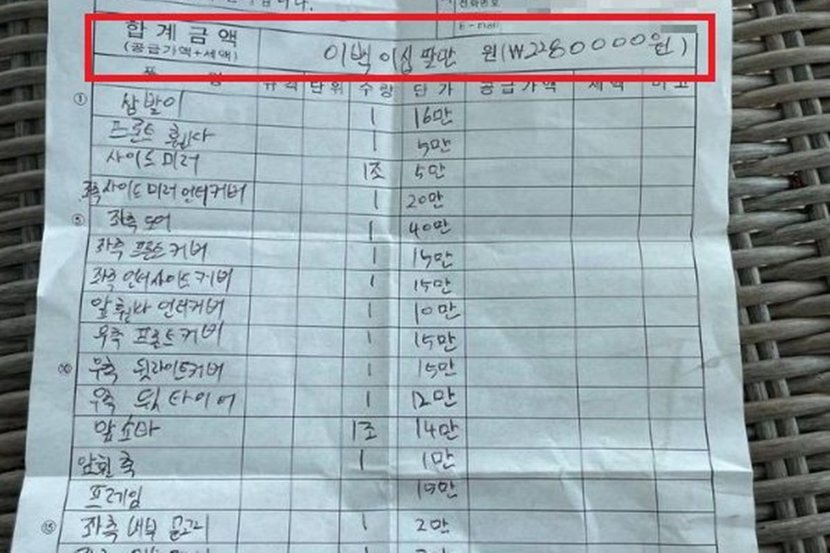 전화번호
합계금액 이백이십팔만 원(₩2280000원)
(공급가액+세액)
규격 단위 수량 단가 공급가액 세액 비고
① 삼발이 1 16만
프론트 휀다 1 5만
사이드 미러 1조 5만
좌측 사이드 미러 언더커버 1 20만
⑤ 좌측 도어 1 40만
좌측 프론트 커버 1 15만
좌측 언더사이드 커버 1 15만
앞휀다 언더커버 1 10만
우측 프론트 커버 1 15만
⑩ 우측 뒷라인트커버 1 15만
우측 뒷 타이어 1 12만
앞쇼바 1조 14만
앞휠축 1 1만
프레임
⑮ 좌측 내부 문고리 1 2만